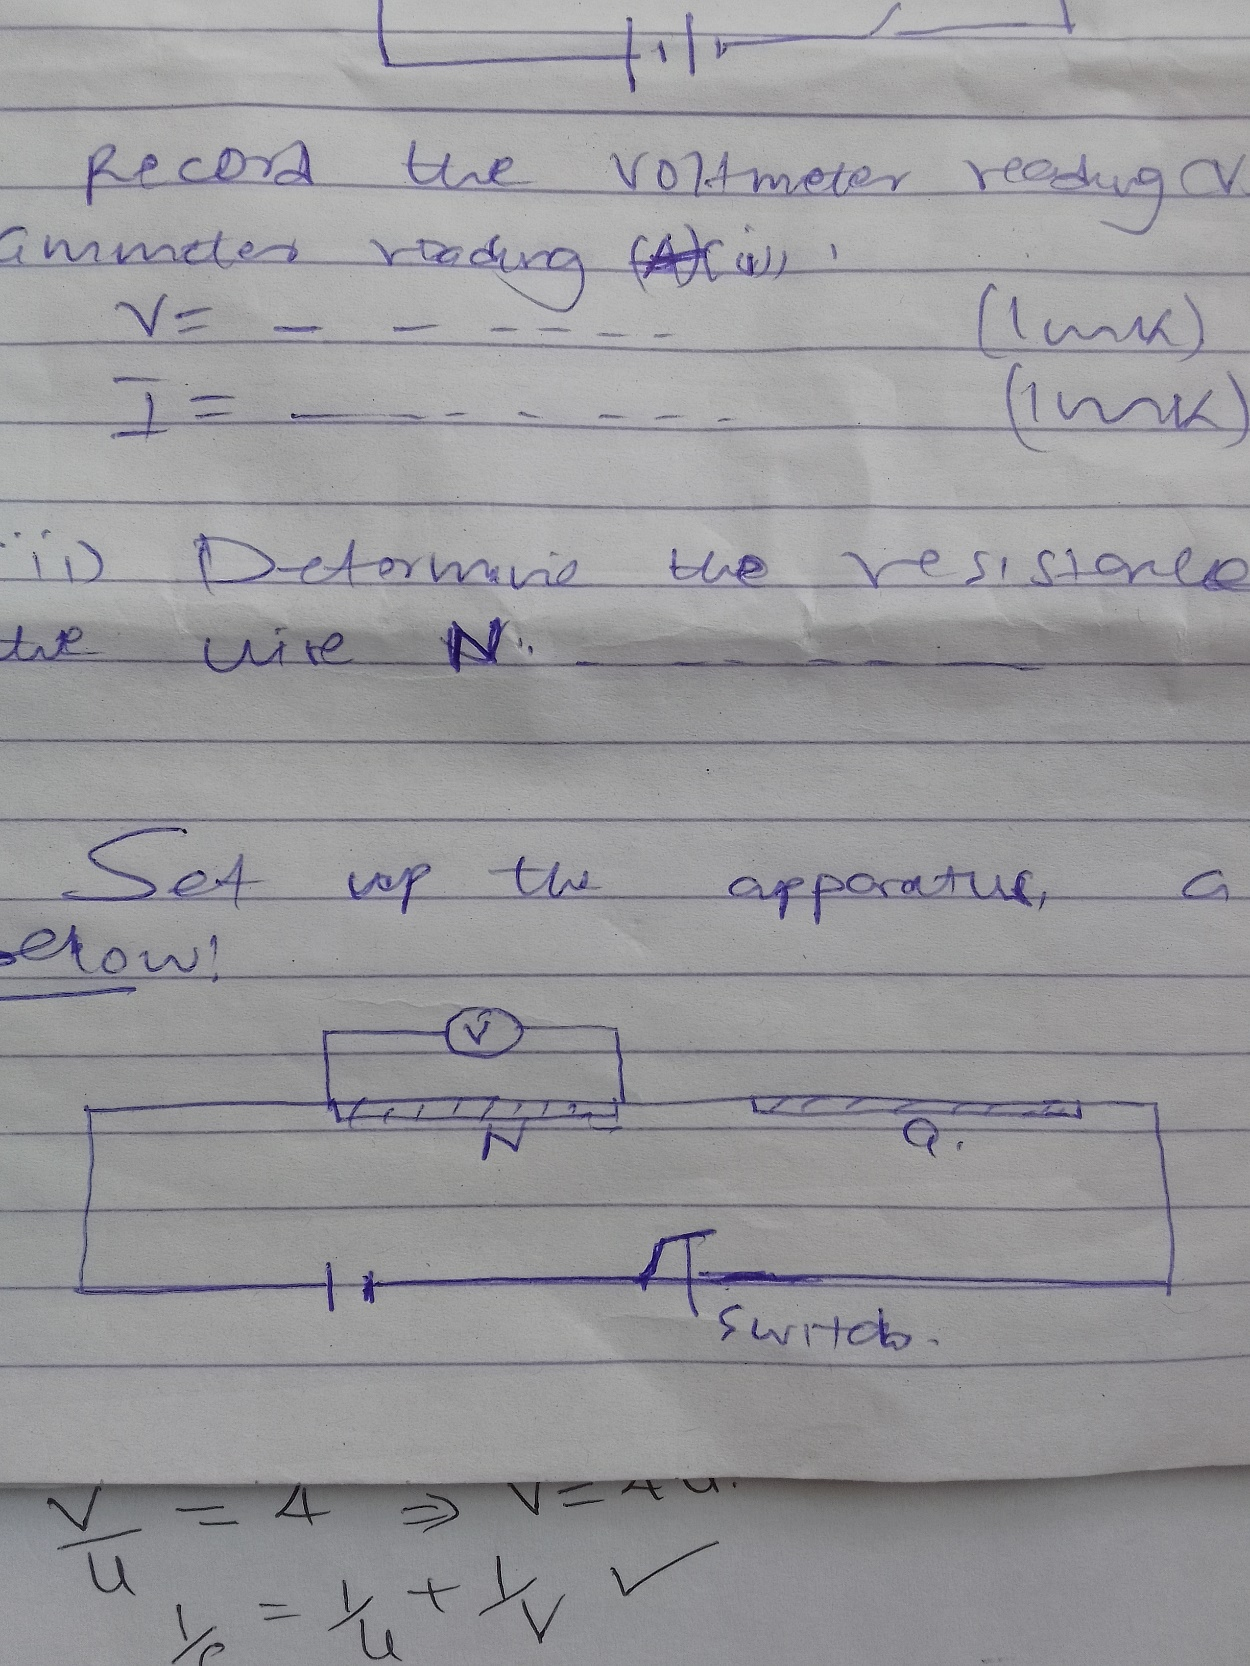 Record the voltmeter reading (V
ammeter reading (A) (ii),
V= - - - - - - - (1mk)
I = - - - - - - (1mk)
iii) Determine the resistance
the wire N. - - - - -
Set up the apparatus, a
below!
V
N Q.
Switch.
V/u = 4 ⇒ V=4u.
= 1/u + 1/V ✓